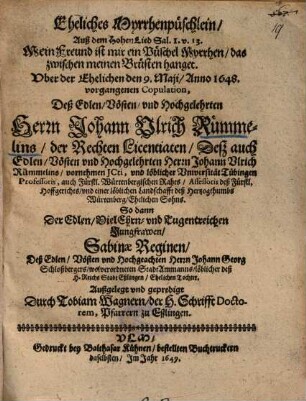 Eheliches Myrrhenpüschlein/
Auß dem Hohen Lied Sal. I. v. 13.
Mein Freund ist mir ein Püschel Myrrhen/ das
zwischen meinen Brüsten hanget.
Vber der Ehelichen den 9. Maji/ Anno 1648.
vorgangenen Copulation,
Deß Edlen/ Vösten/ vnd Hochgelehrten
Herrn Johann Vlrich Rümme-
lins/ der Rechten Licentiaten/ Deß auch
Edlen/ Vösten vnd Hochgelehrten Herrn Johann Vlrich
Rümmelins/ vornehmen JCti, vnd löblicher Vniversität Tübingen
Professoris, auch Fürstl. Würtenbergischen Rahts/ Assessoris deß Fürstl.
Hoffgerichts/ vnd einer löblichen Landschafft deß Hertzogthumbs
Würtenberg/ Ehelichen Sohns.
So dann
Der Edlen/ Viel Ehrn- vnd Tugentreichen
Jungfrawen/
Sabinæ Reginen/
Deß Edlen/ Vösten vnd Hochgeachten Herrn Johann Georg
Schloßbergers/ wolverordneten Stadt Ammanns/ löblicher deß
H. Reichs Stadt Eßlingen/ Ehelichen Tochter.
Außgelegt vnd geprediget
Durch Tobiam Wagnern/ der H. Schrifft Docto-
rem, Pfarrern zu Eßlingen.
VLM/
Gedruckt bey Balthasar Kühnen/ bestellten Buchtruckern
daselbsten/ Im Jahr 1649.